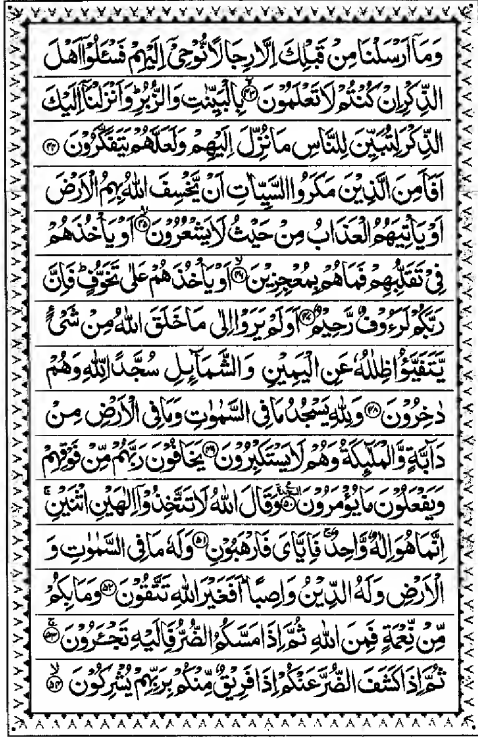 وَمَاۤ اَرْسَلْنَا مِنْ قَبْلِكَ اِلَّا رِجَالًا نُّوْحِیْۤ اِلَیْهِمْ فَسْـَٔلُوْۤا اَهْلَ
الذِّكْرِ اِنْ كُنْتُمْ لَا تَعْلَمُوْنَۙ۝۴۳ بِالْبَیِّنٰتِ وَالزُّبُرِؕ وَاَنْزَلْنَاۤ اِلَیْكَ
الذِّكْرَ لِتُبَیِّنَ لِلنَّاسِ مَا نُزِّلَ اِلَیْهِمْ وَلَعَلَّهُمْ یَتَفَكَّرُوْنَ۝۴۴
اَفَاَمِنَ الَّذِیْنَ مَكَرُوا السَّیِّاٰتِ اَنْ یَّخْسِفَ اللّٰهُ بِهِمُ الْاَرْضَ
اَوْ یَاْتِیَهُمُ الْعَذَابُ مِنْ حَیْثُ لَا یَشْعُرُوْنَۙ۝۴۵ اَوْ یَاْخُذَهُمْ
فِیْ تَقَلُّبِهِمْ فَمَا هُمْ بِمُعْجِزِیْنَۙ۝۴۶ اَوْ یَاْخُذَهُمْ عَلٰی تَخَوُّفٍؕ فَاِنَّ
رَبَّكُمْ لَرَءُوْفٌ رَّحِیْمٌ۝۴۷ اَوَلَمْ یَرَوْا اِلٰی مَا خَلَقَ اللّٰهُ مِنْ شَیْءٍ
یَّتَفَیَّؤُا ظِلٰلُهٗ عَنِ الْیَمِیْنِ وَالشَّمَآىِٕلِ سُجَّدًا لِّلّٰهِ وَهُمْ
دٰخِرُوْنَ۝۴۸ وَلِلّٰهِ یَسْجُدُ مَا فِی السَّمٰوٰتِ وَمَا فِی الْاَرْضِ مِنْ
دَآبَّةٍ وَّالْمَلٰٓىِٕكَةُ وَهُمْ لَا یَسْتَكْبِرُوْنَ۝۴۹ یَخَافُوْنَ رَبَّهُمْ مِّنْ فَوْقِهِمْ
وَیَفْعَلُوْنَ مَا یُؤْمَرُوْنَ۝۵۰ وَقَالَ اللّٰهُ لَا تَتَّخِذُوْۤا اِلٰهَیْنِ اثْنَیْنِۚ
اِنَّمَا هُوَ اِلٰهٌ وَّاحِدٌۚ فَاِیَّایَ فَارْهَبُوْنِ۝۵۱ وَلَهٗ مَا فِی السَّمٰوٰتِ وَ
الْاَرْضِ وَلَهُ الدِّیْنُ وَاصِبًاؕ اَفَغَیْرَ اللّٰهِ تَتَّقُوْنَ۝۵۲ وَمَا بِكُمْ
مِّنْ نِّعْمَةٍ فَمِنَ اللّٰهِ ثُمَّ اِذَا مَسَّكُمُ الضُّرُّ فَاِلَیْهِ تَجْـَٔرُوْنَۚ۝۵۳
ثُمَّ اِذَا كَشَفَ الضُّرَّ عَنْكُمْ اِذَا فَرِیْقٌ مِّنْكُمْ بِرَبِّهِمْ یُشْرِكُوْنَۙ۝۵۴